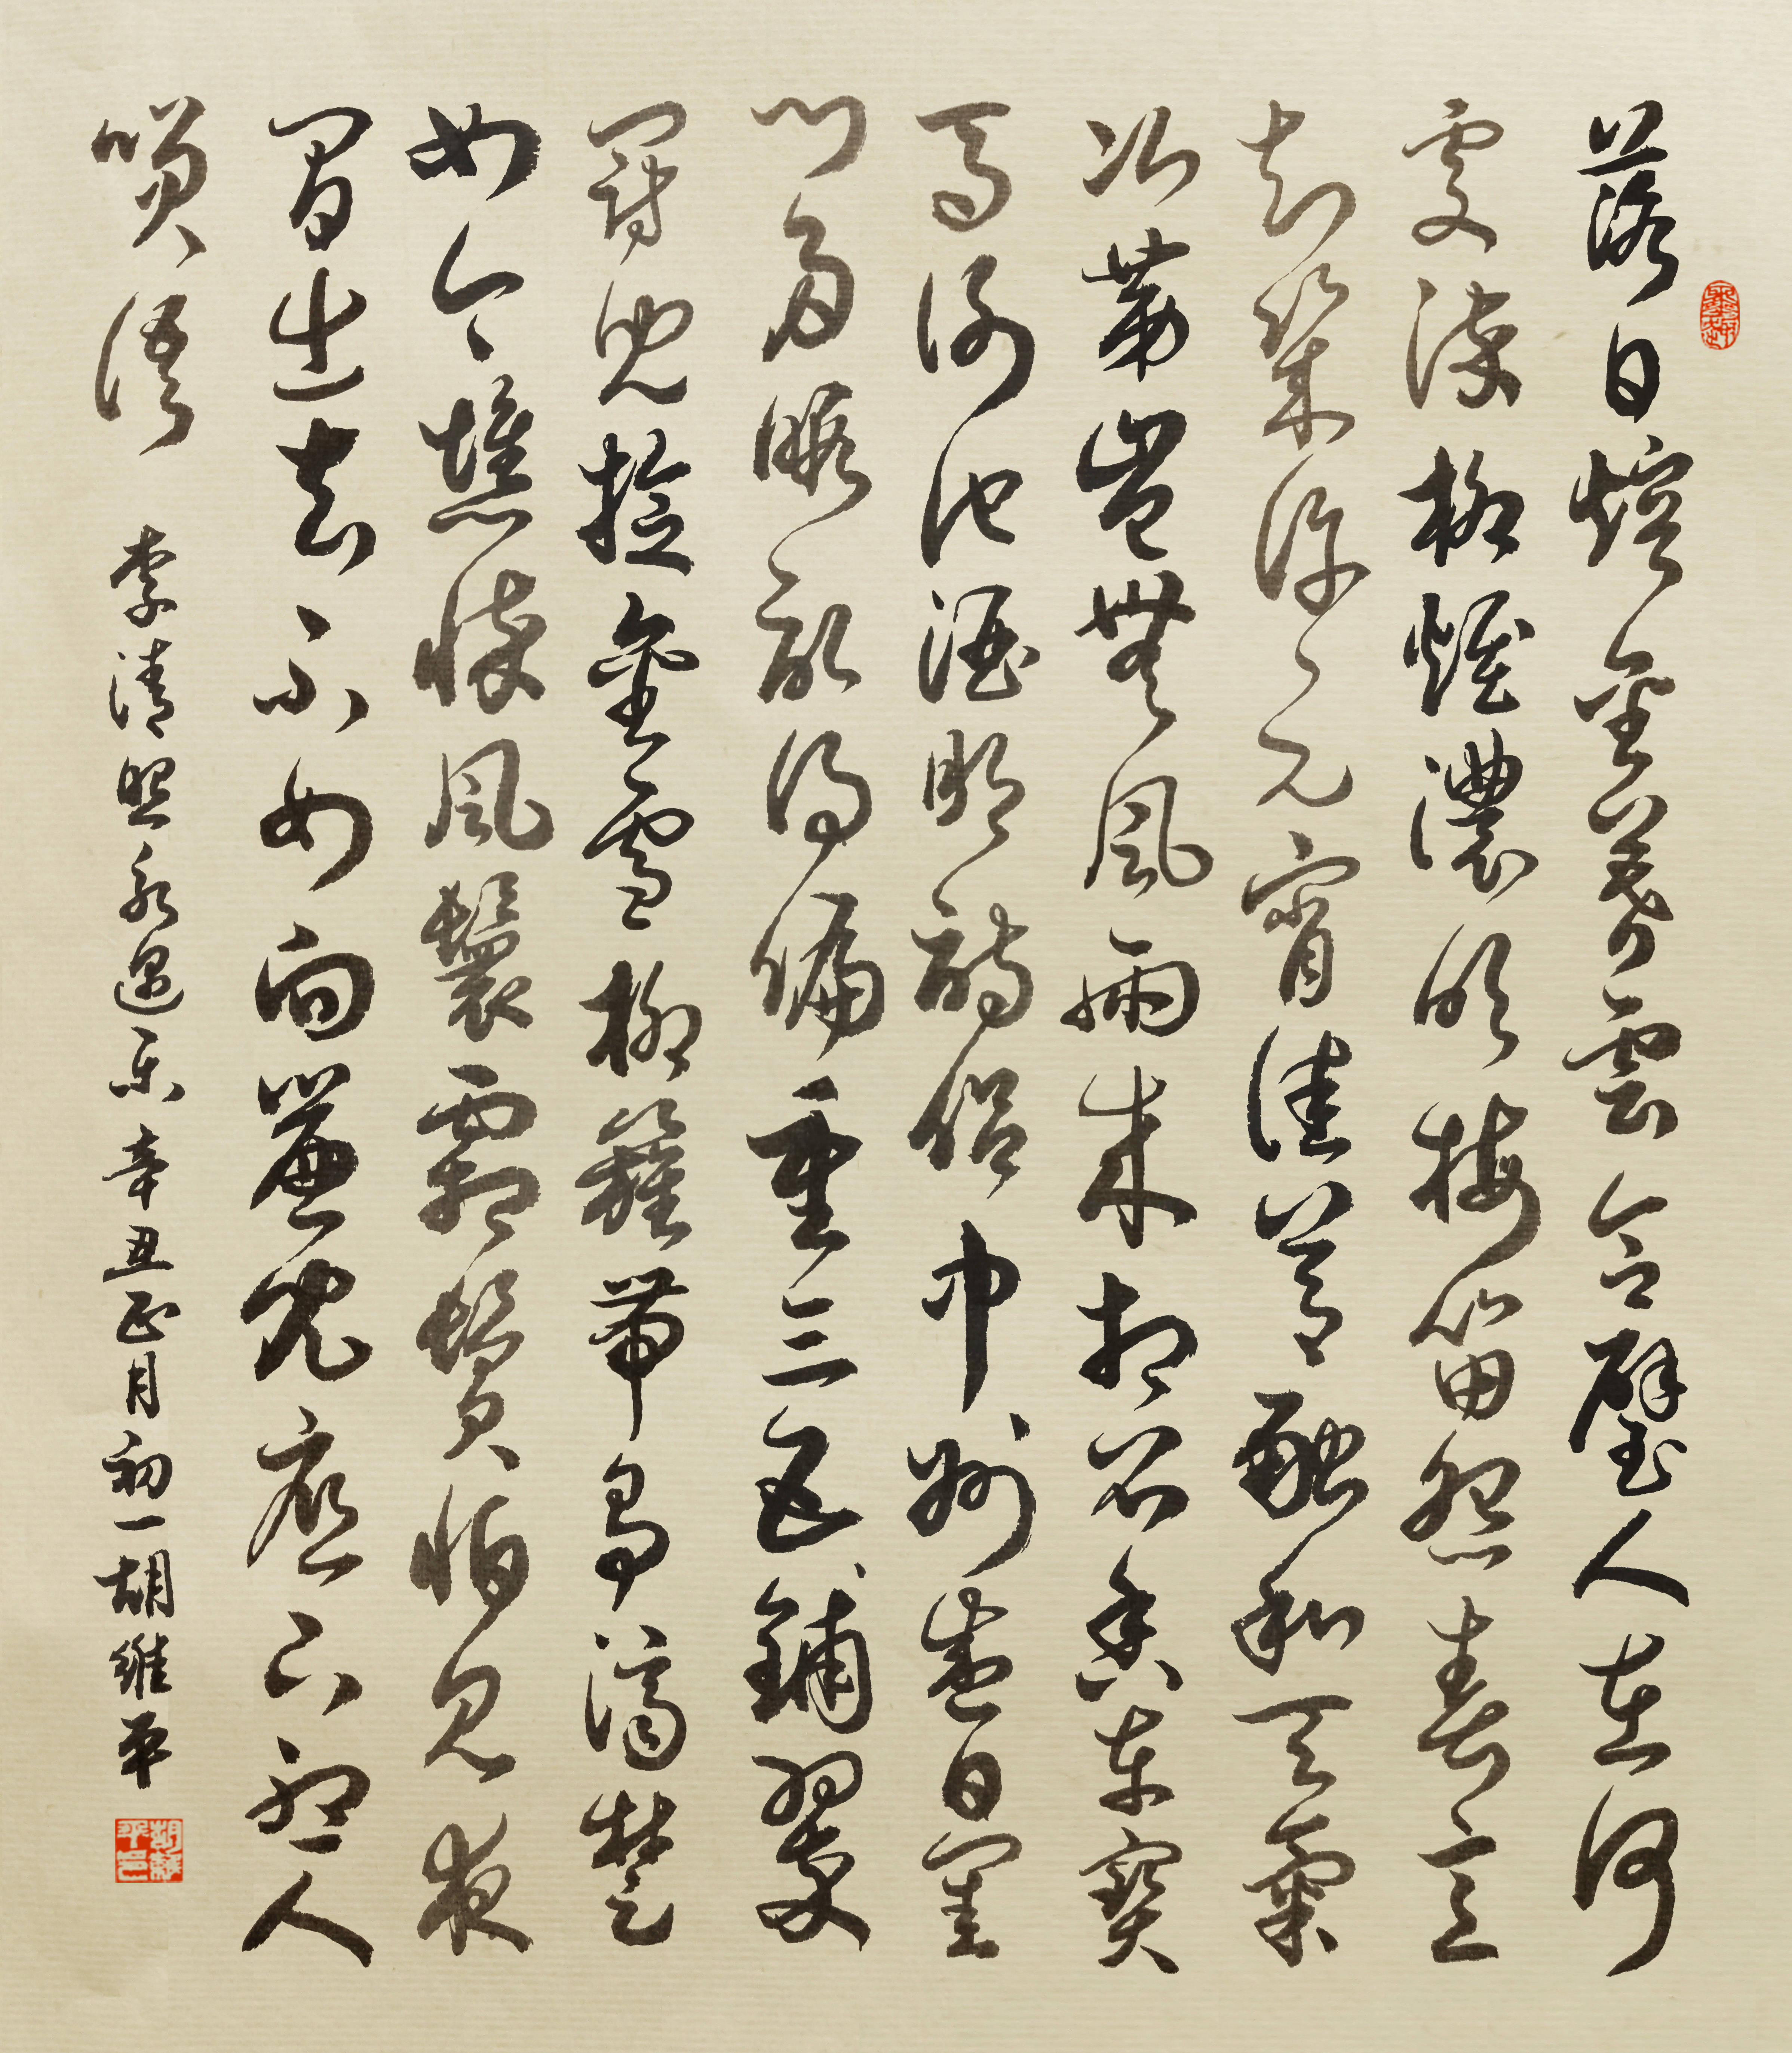 落日熔金暮雲合璧人在何
處染柳煙濃吹梅笛怨春意
知幾許元宵佳節融和天氣
次第豈無風雨來相召香車寶
馬謝他酒朋詩侶中州盛日閨
門多暇記得偏重三五鋪翠
冠兒撚金雪柳簇帶爭濟楚
如今憔悴風鬟霜鬢怕見夜
間出去不如向簾兒底下聽人
笑語
李清照永遇樂 辛丑正月初一胡維平
胡維平印